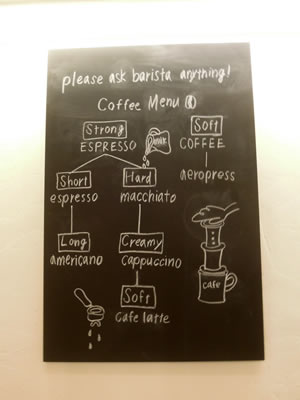 please ask barista anything!
Coffee Menu
Strong
ESPRESSO
milk
Soft
COFFEE
aeropress
Short
espresso
Hard
macchiato
Long
americano
Creamy
cappuccino
Soft
Cafe latte
cafe